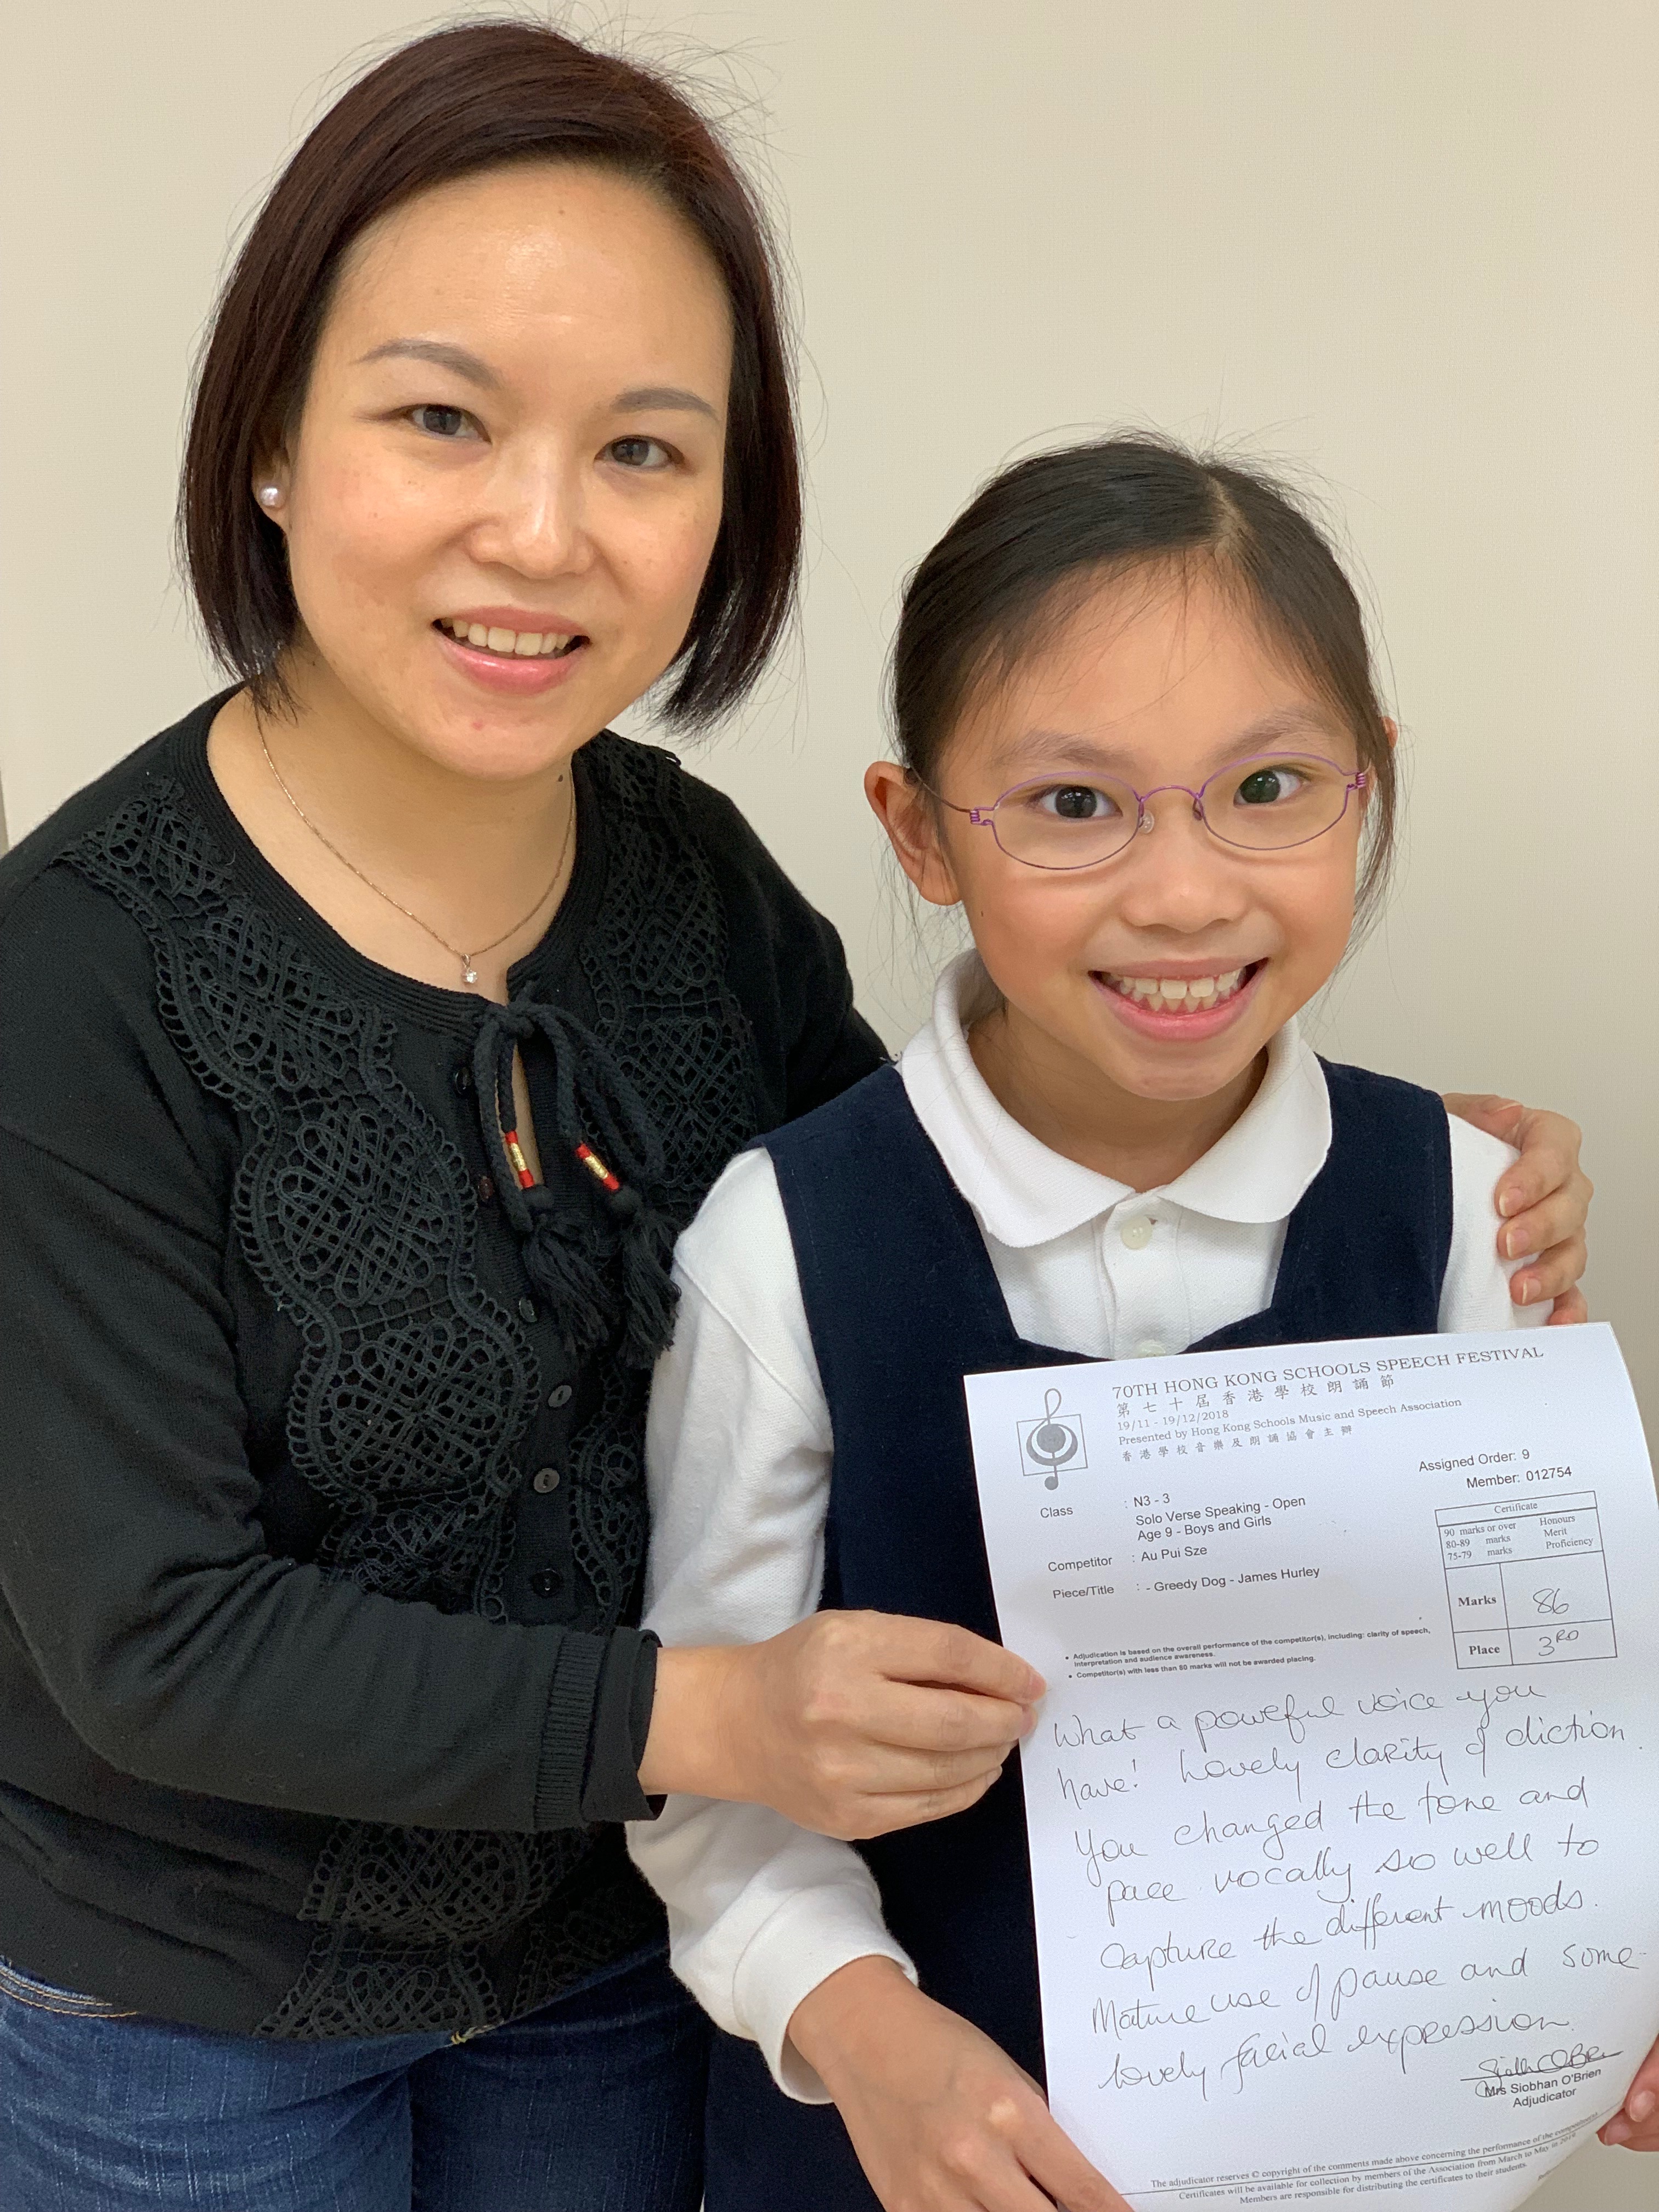 70TH HONG KONG SCHOOLS SPEECH FESTIVAL
第七十屆香港學校朗誦節
19/11 - 19/12/2018
Presented by Hong Kong Schools Music and Speech Association
香港學校音樂及朗誦協會主辦
Assigned Order: 9
Member: 012754
Class : N3 - 3
Solo Verse Speaking - Open
Age 9 - Boys and Girls
Competitor : Au Pui Sze
Piece/Title : - Greedy Dog - James Hurley
Certificate
90 marks or over Honours
80-89 marks Merit
75-79 marks Proficiency
Marks 86
Place 3RD
• Adjudication is based on the overall performance of the competitor(s), including: clarity of speech,
interpretation and audience awareness.
• Competitor(s) with less than 80 marks will not be awarded placing.
What a powerful voice you
have! Lovely clarity of diction.
You changed the tone and
pace vocally so well to
capture the different moods.
Mature use of pause and some
lovely facial expression.
Mrs Siobhan O'Brien
Adjudicator
The adjudicator reserves © copyright of the comments made above concerning the performance of the competitor(s).
Certificates will be available for collection by members of the Association from March to May in 2019.
Members are responsible for distributing the certificates to their students.